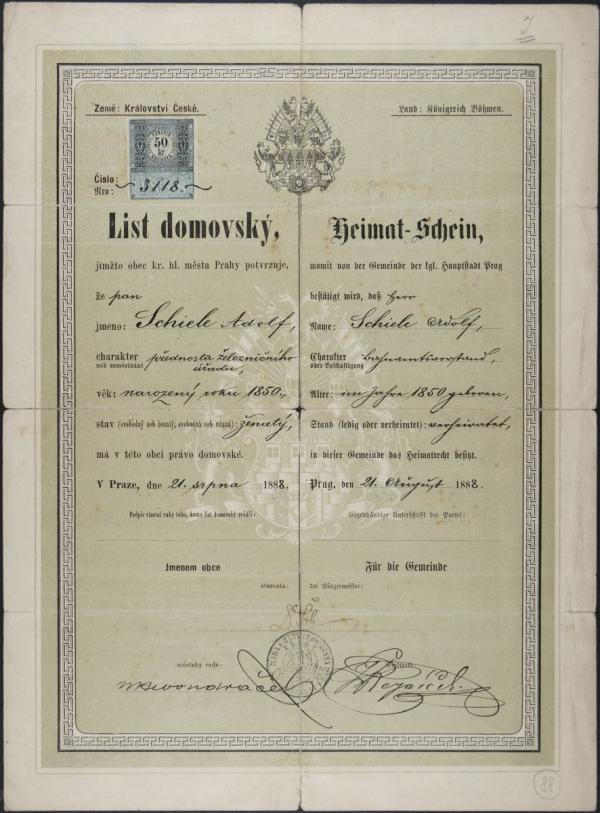 Země: Království České.
50
kr
Číslo:
Nro:
3118.
List domovský,
jímžto obec kr. hl. města Prahy potvrzuje,
že pan
jméno: Schiele Adolf,
charakter
neb zaměstnání
přednosta železničního
úřadu,
věk: narozený roku 1850.,
stav (svobodný neb ženatý, svobodná neb vdaná): ženatý,
má v této obci právo domovské.
V Praze, dne 21. srpna 1888.
Podpis vlastní ruky toho, komu list domovský svědčí:
Jmenem obce
starosta:
městský rada:
Land: Königreich Böhmen.
Heimat-Schein,
womit von der Gemeinde der kgl. Hauptstadt Prag
bestätigt wird, daß Herr
Name: Schiele Adolf,
Charakter
oder Beschäftigung
Bahnamtsvorstand,
Alter: im Jahre 1850 geboren,
Stand (ledig oder verheiratet): verheiratet,
in dieser Gemeinde das Heimatrecht besitzt.
Prag, den 21. August 1888.
Eigenhändige Unterschrift der Partei:
Für die Gemeinde
der Bürgermeister:
88